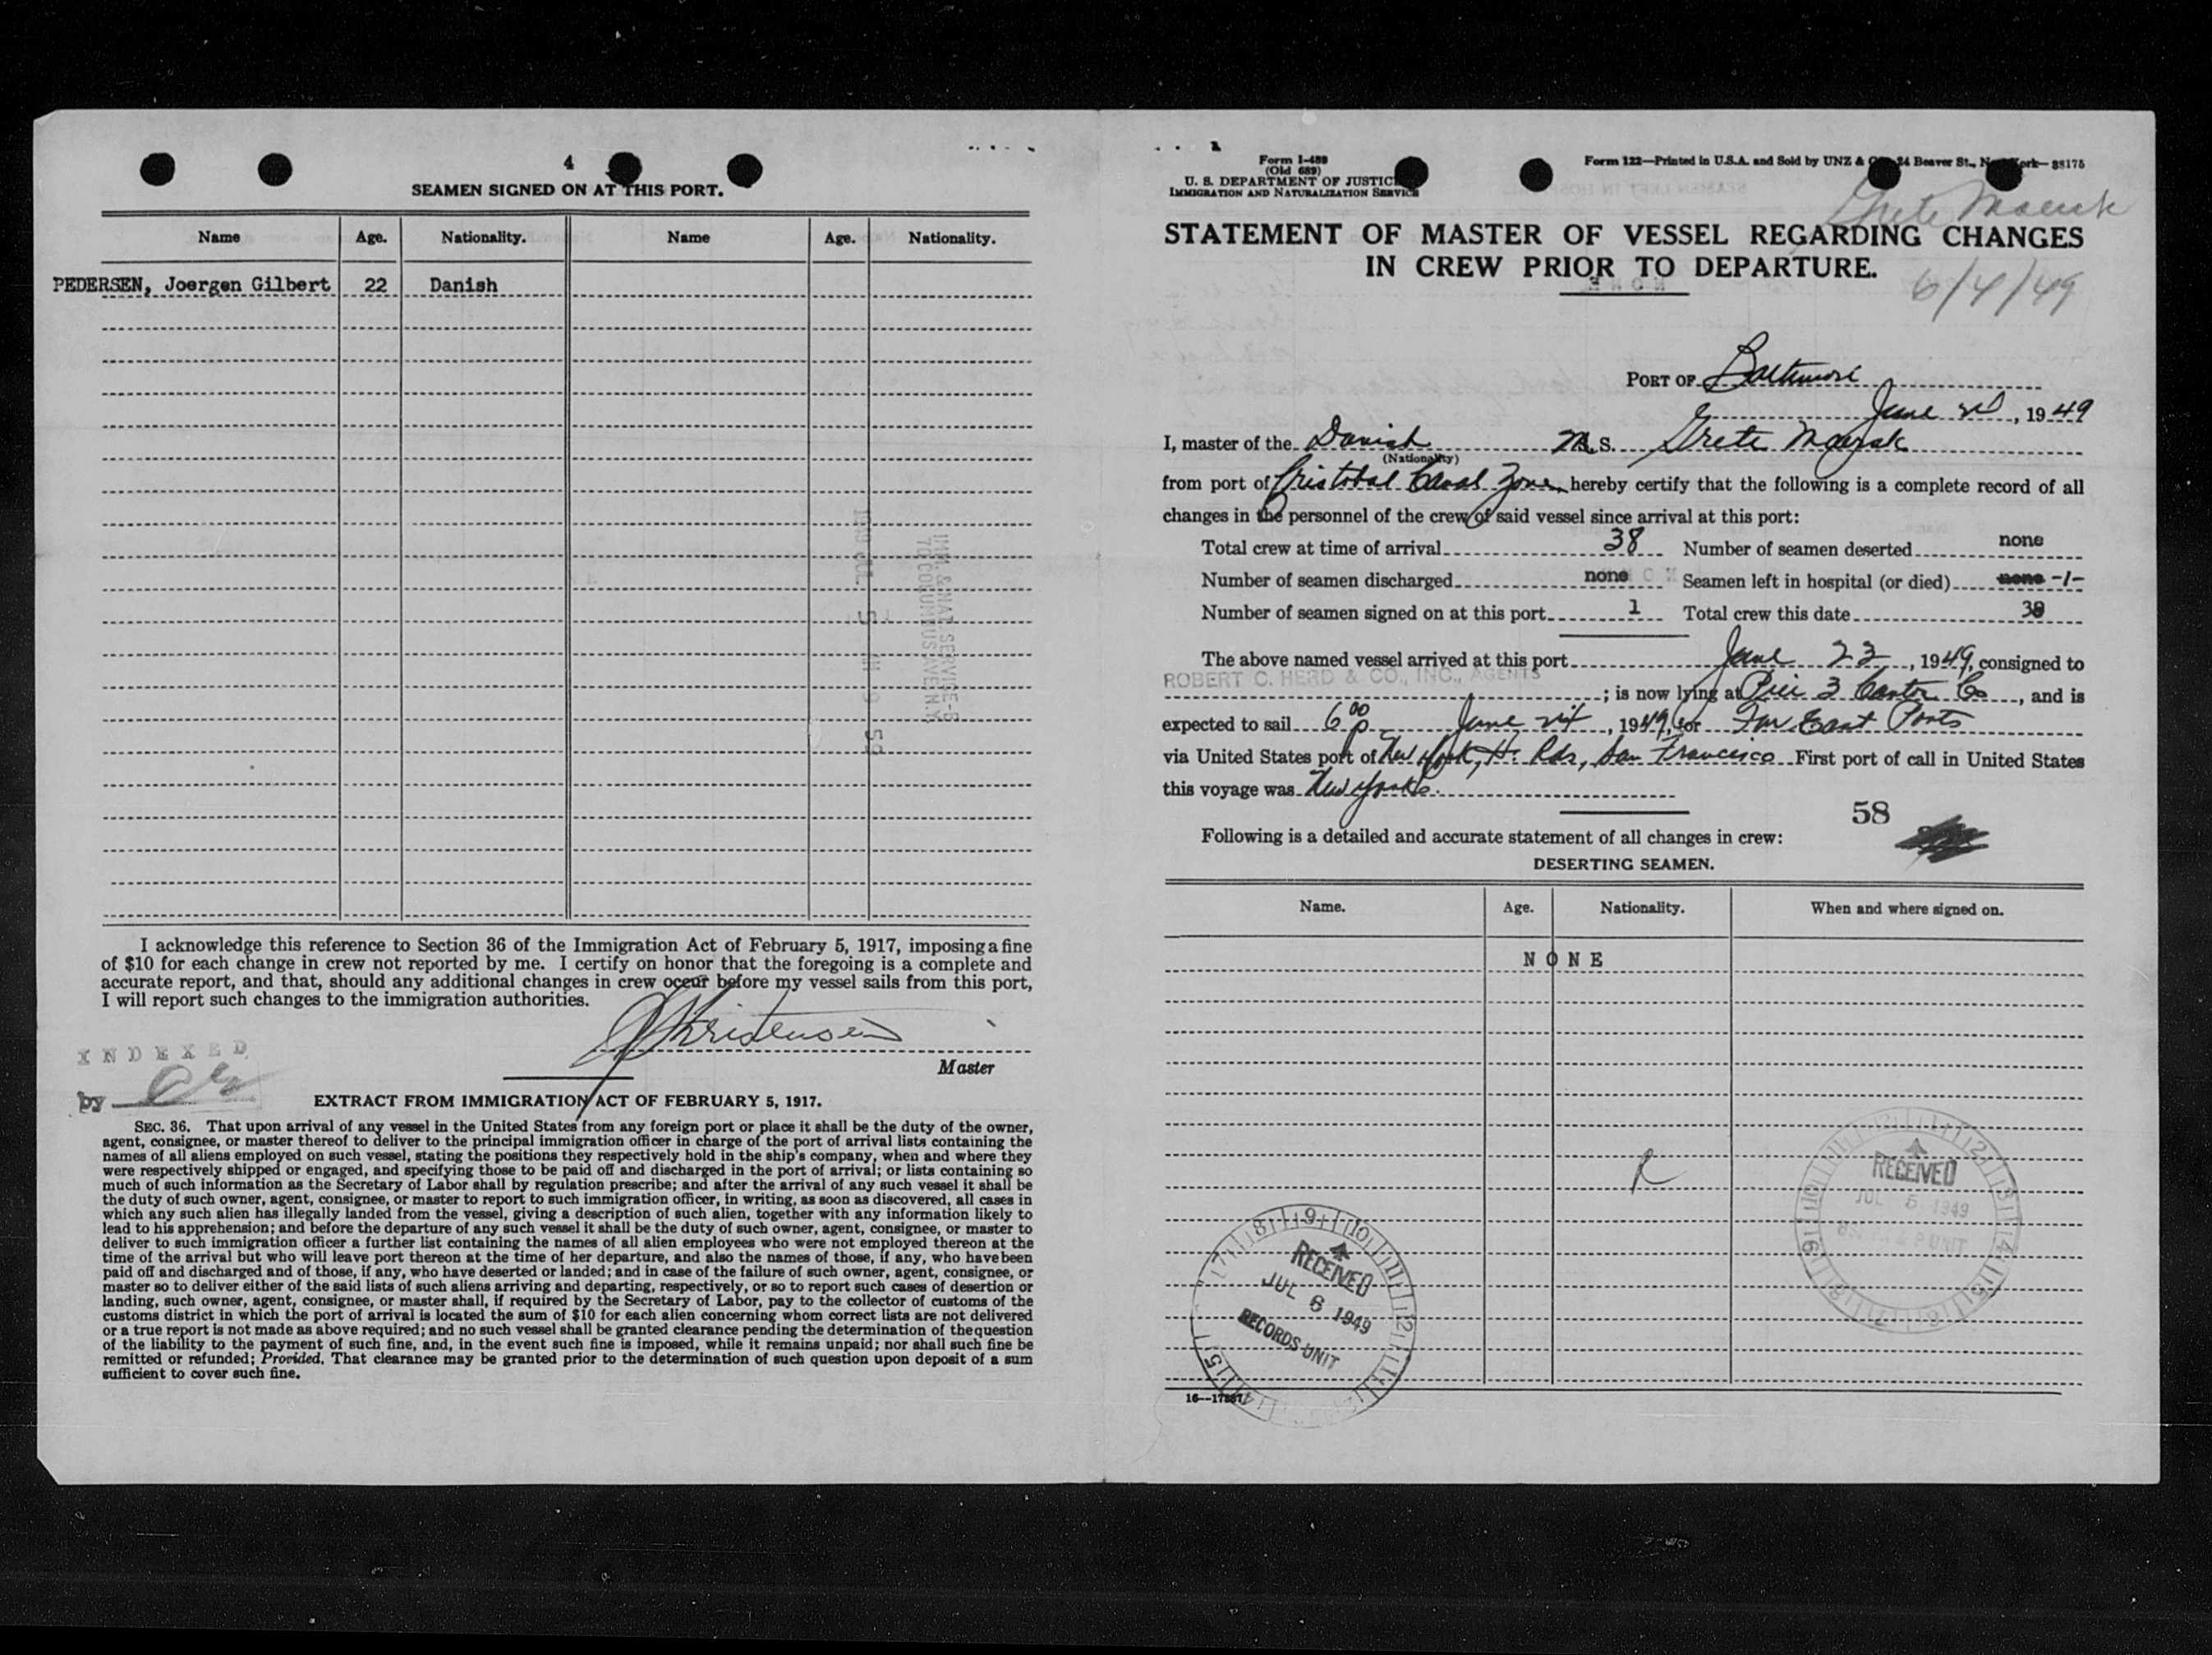 4
SEAMEN SIGNED ON AT THIS PORT.
Name Age. Nationality. Name Age. Nationality.
PEDERSEN, Joergen Gilbert 22 Danish
I acknowledge this reference to Section 36 of the Immigration Act of February 5, 1917, imposing a fine
of $10 for each change in crew not reported by me. I certify on honor that the foregoing is a complete and
accurate report, and that, should any additional changes in crew occur before my vessel sails from this port,
I will report such changes to the immigration authorities.
Christensen
Master
INDEXED
by
EXTRACT FROM IMMIGRATION ACT OF FEBRUARY 5, 1917.
SEC. 36. That upon arrival of any vessel in the United States from any foreign port or place it shall be the duty of the owner,
agent, consignee, or master thereof to deliver to the principal immigration officer in charge of the port of arrival lists containing the
names of all aliens employed on such vessel, stating the positions they respectively hold in the ship's company, when and where they
were respectively shipped or engaged, and specifying those to be paid off and discharged in the port of arrival; or lists containing so
much of such information as the Secretary of Labor shall by regulation prescribe; and after the arrival of any such vessel it shall be
the duty of such owner, agent, consignee, or master to report to such immigration officer, in writing, as soon as discovered, all cases in
which any such alien has illegally landed from the vessel, giving a description of such alien, together with any information likely to
lead to his apprehension; and before the departure of any such vessel it shall be the duty of such owner, agent, consignee, or master to
deliver to such immigration officer a further list containing the names of all alien employees who were not employed thereon at the
time of the arrival but who will leave port thereon at the time of her departure, and also the names of those, if any, who have been
paid off and discharged and of those, if any, who have deserted or landed; and in case of the failure of such owner, agent, consignee, or
master so to deliver either of the said lists of such aliens arriving and departing, respectively, or so to report such cases of desertion or
landing, such owner, agent, consignee, or master shall, if required by the Secretary of Labor, pay to the collector of customs of the
customs district in which the port of arrival is located the sum of $10 for each alien concerning whom correct lists are not delivered
or a true report is not made as above required; and no such vessel shall be granted clearance pending the determination of the question
of the liability to the payment of such fine, and, in the event such fine is imposed, while it remains unpaid; nor shall such fine be
remitted or refunded; Provided, That clearance may be granted prior to the determination of such question upon deposit of a sum
sufficient to cover such fine.
Form I-489
(Old 689)
U. S. DEPARTMENT OF JUSTICE
IMMIGRATION AND NATURALIZATION SERVICE
Form 122—Printed in U.S.A. and Sold by UNZ & 24 Beaver St., 38175
Grete Maersk
STATEMENT OF MASTER OF VESSEL REGARDING CHANGES
IN CREW PRIOR TO DEPARTURE.
6/4/49
PORT OF Baltimore
June , 1949
I, master of the Danish M.S. Grete Maersk
(Nationality)
from port of Cristobal Canal Zone, hereby certify that the following is a complete record of all
changes in the personnel of the crew of said vessel since arrival at this port:
Total crew at time of arrival 38 Number of seamen deserted none
Number of seamen discharged none Seamen left in hospital (or died) none -1-
Number of seamen signed on at this port 1 Total crew this date 38
The above named vessel arrived at this port June 23, 1949, consigned to
ROBERT C. HERD & CO., INC., AGENTS
; is now lying at Pier 3 Canton Co, and is
expected to sail 6 00 p June , 1949, for Far East Ports
via United States port of New York, H. Rds, San Francisco First port of call in United States
this voyage was New York.
58
Following is a detailed and accurate statement of all changes in crew:
DESERTING SEAMEN.
Name. Age. Nationality. When and where signed on.
NONE
R
RECEIVED
JUL 5 1949
RECEIVED
JUL 6 1949
RECORDS UNIT